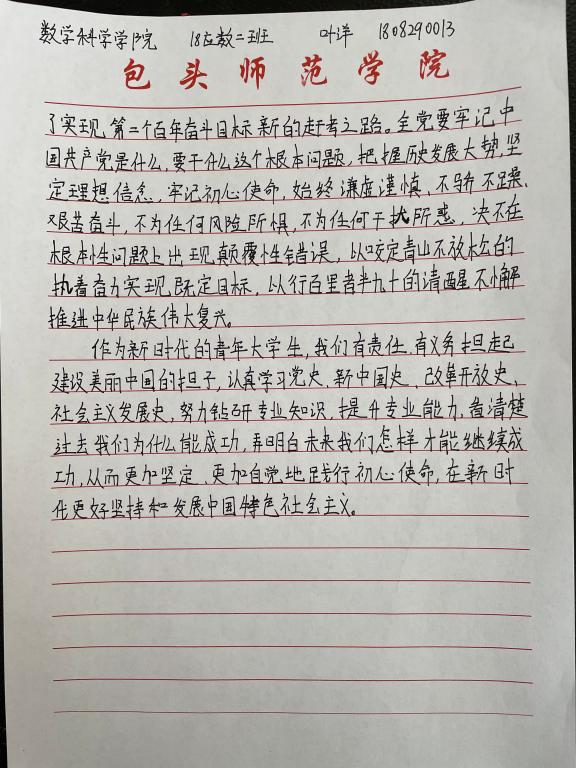 数学科学学院 18应数二班 叶洋 1808290013
包头师范学院
了实现第二个百年奋斗目标新的赶考之路。全党要牢记中
国共产党是什么,要干什么这个根本问题,把握历史发展大势,坚
定理想信念,牢记初心使命,始终谦虚谨慎、不骄不躁、
艰苦奋斗,不为任何风险所惧,不为任何干扰所惑,决不在
根本性问题上出现颠覆性错误,以咬定青山不放松的
执着奋力实现既定目标,以行百里者半九十的清醒不懈
推进中华民族伟大复兴。
作为新时代的青年大学生,我们有责任、有义务担起
建设美丽中国的担子,认真学习党史、新中国史、改革开放史、
社会主义发展史,努力钻研专业知识,提升专业能力,看清楚
过去我们为什么能成功,弄明白未来我们怎样才能继续成
功,从而更加坚定、更加自觉地践行初心使命,在新时
代更好坚持和发展中国特色社会主义。